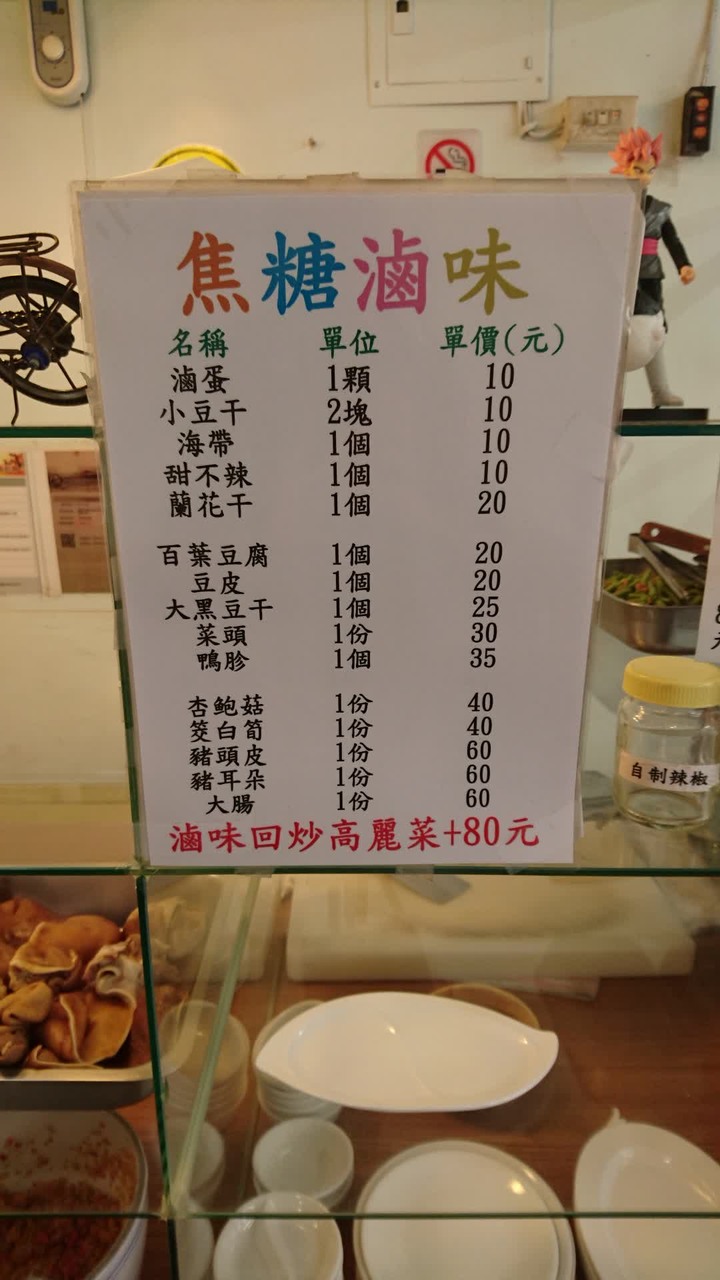 焦糖滷味
名稱 單位 單價(元)
滷蛋 1顆 10
小豆干 2塊 10
海帶 1個 10
甜不辣 1個 10
蘭花干 1個 20
百葉豆腐 1個 20
豆皮 1個 20
大黑豆干 1個 25
菜頭 1份 30
鴨胗 1個 35
杏鮑菇 1份 40
筊白筍 1份 40
豬頭皮 1份 60
豬耳朵 1份 60
大腸 1份 60
滷味回炒高麗菜+80元
自制辣椒